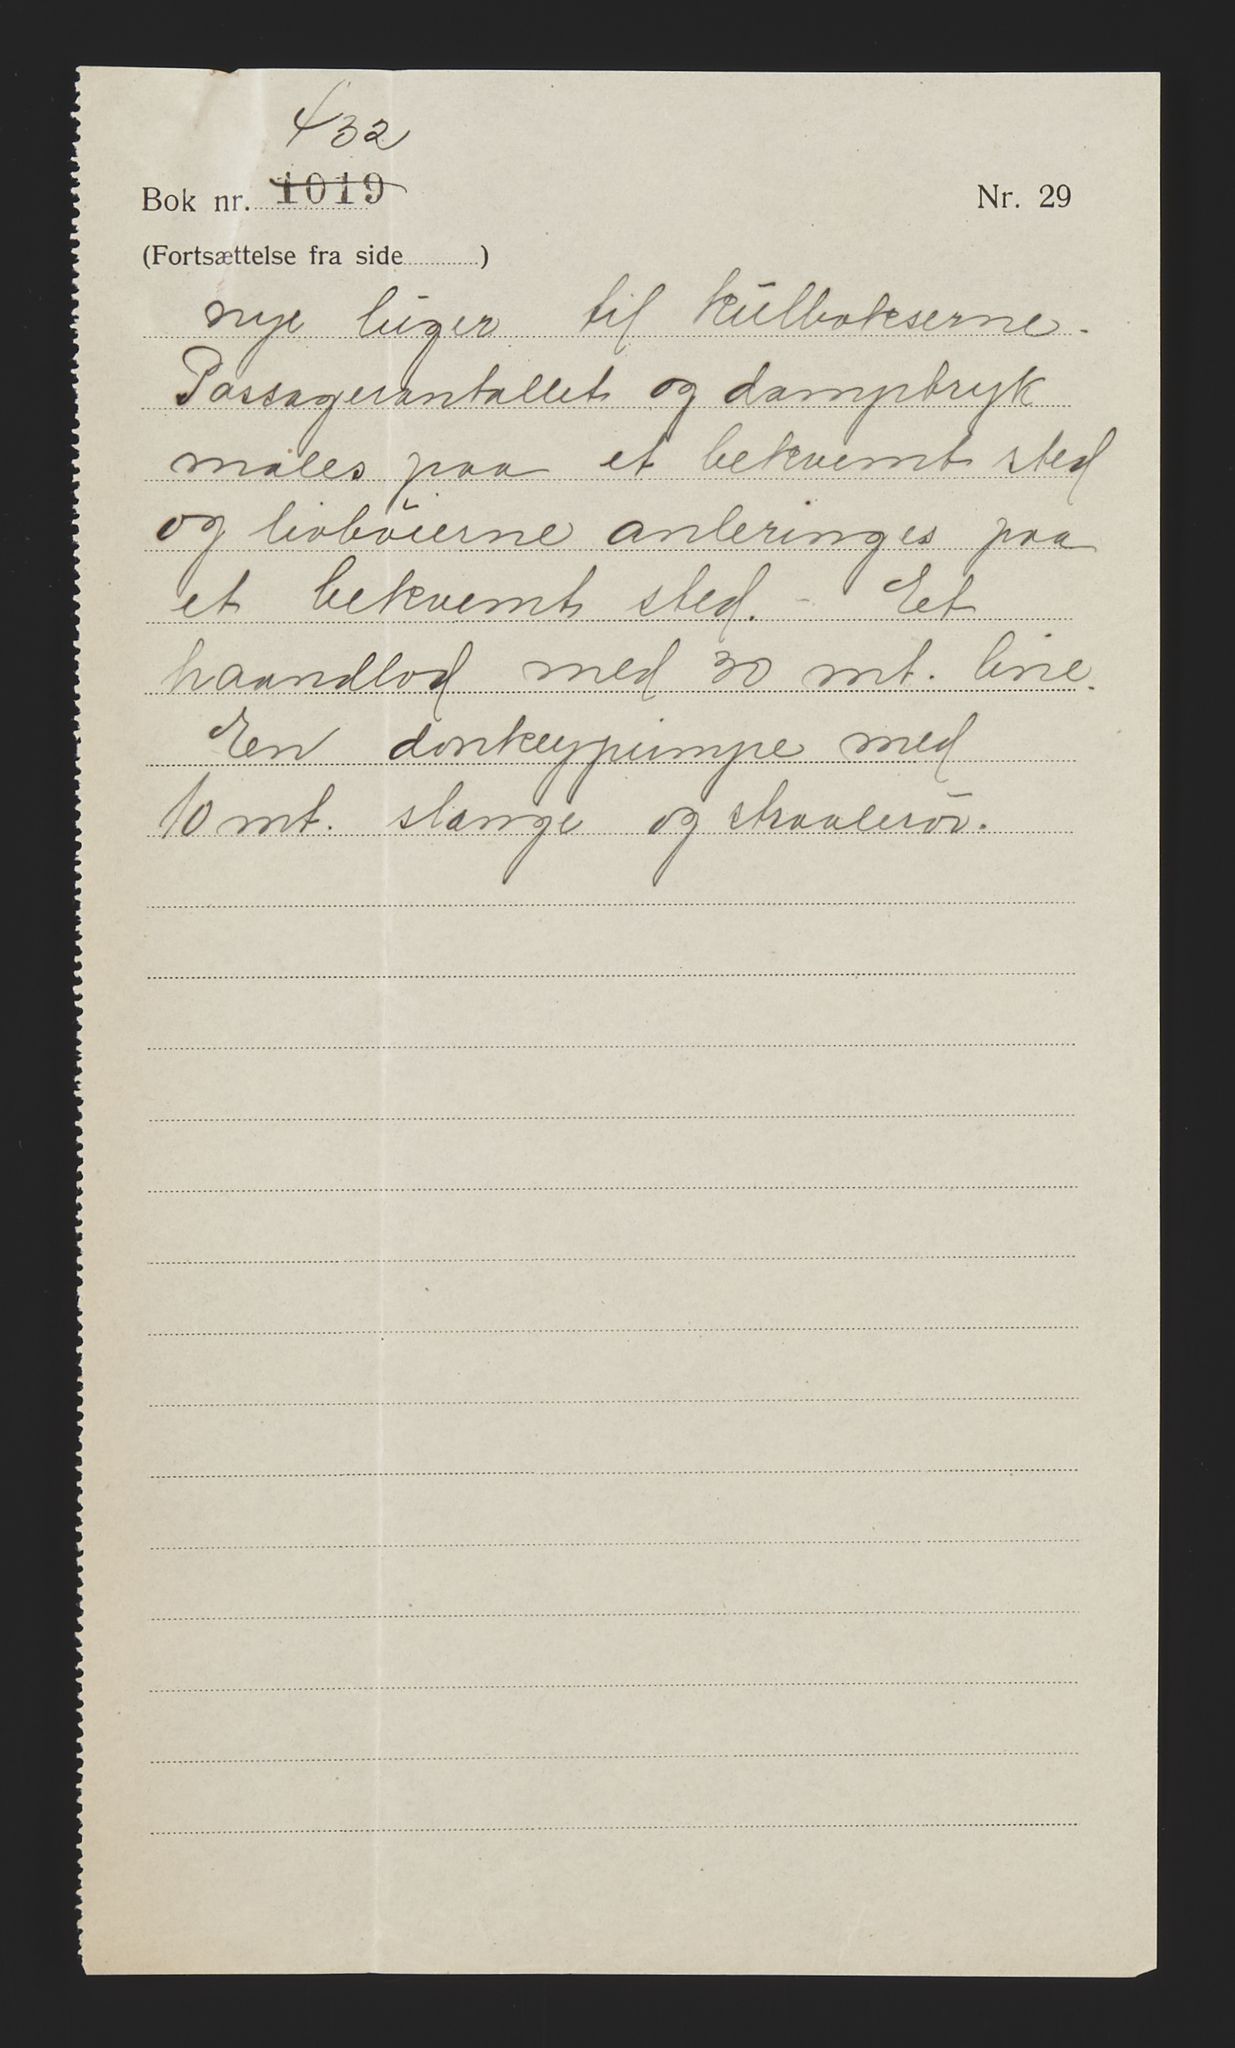 432
Bok nr. 1019
Nr. 29
(Fortsættelse fra side..........)
nye luger til kulbokserne.
Passagerantallet og damptryk
males paa et bekvemt sted
og livbøierne anbringes paa
et bekvemt sted. - Et
haandlod med 30 mt. line.
En donkeypumpe med
10 mt. slange og straalerør.